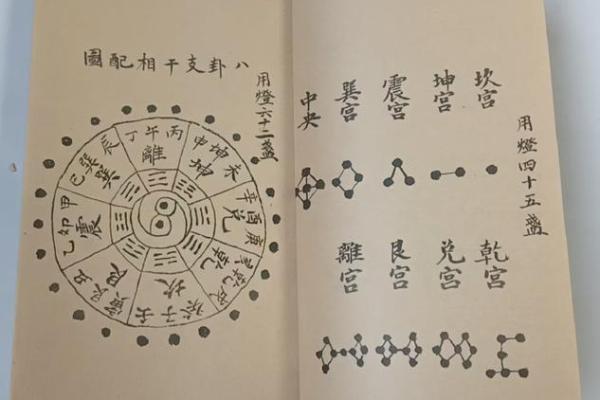 用燈四十五盞
坎宮
坤宮
震宮
巽宮
中央
乾宮
兌宮
艮宮
離宮
八卦支干相配圖
用燈六十二盞
丙午丁
離
未坤申
坤
庚酉辛
兌
戌乾亥
乾
壬子癸
坎
丑艮寅
艮
甲卯乙
震
辰巽巳
巽